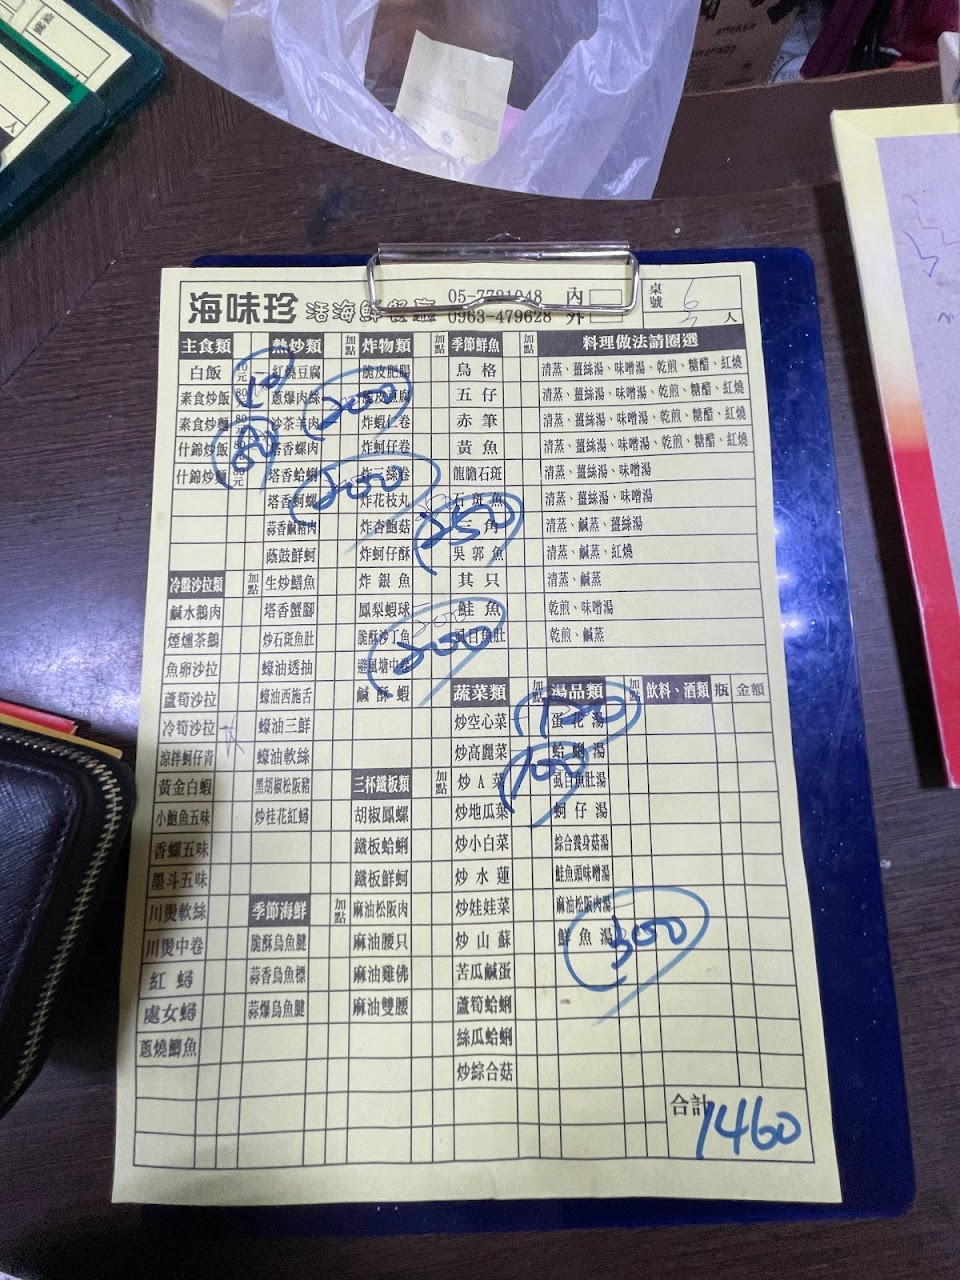 海味珍 活海鮮餐廳 05-7721048 內 桌號 6
0963-479628 外 人
主食類 熱炒類 加點 炸物類 加點 季節鮮魚 加點 料理做法請圈選
白飯 10元 一 紅燒豆腐 脆皮肥腸 烏格 清蒸、薑絲湯、味噌湯、乾煎、糖醋、紅燒
素食炒飯 80 蔥爆肉絲 脆皮豆腐 五仔 清蒸、薑絲湯、味噌湯、乾煎、糖醋、紅燒
素食炒麵 80元 沙茶羊肉 炸蝦仁卷 赤筆 清蒸、薑絲湯、味噌湯、乾煎、糖醋、紅燒
什錦炒飯 80 塔香螺肉 炸蚵仔卷 黃魚 清蒸、薑絲湯、味噌湯、乾煎、糖醋、紅燒
什錦炒麵 80元 塔香蛤蜊 炸三絲卷 龍膽石斑 清蒸、薑絲湯、味噌湯
塔香蚵螺 炸花枝丸 石斑魚 清蒸、薑絲湯、味噌湯
蒜香鹹豬肉 炸杏鮑菇 三角 清蒸、鹹蒸、薑絲湯
蔭鼓鮮蚵 炸蚵仔酥 吳郭魚 清蒸、鹹蒸、紅燒
冷盤沙拉類 加點 生炒鱔魚 炸銀魚 其只 清蒸、鹹蒸
鹹水鵝肉 塔香蟹腳 鳳梨蝦球 鮭魚 乾煎、味噌湯
煙燻茶鵝 炒石斑魚肚 脆酥沙丁魚 虱目魚肚 乾煎、鹹蒸
魚卵沙拉 蠔油透抽 避風塘中卷
蘆筍沙拉 蠔油西施舌 鹹酥蝦 蔬菜類 加點 湯品類 加點 飲料、酒類 瓶 金額
冷筍沙拉 蠔油三鮮 炒空心菜 蛋花湯
涼拌蚵仔青 蠔油軟絲 炒高麗菜 蛤蜊湯
黃金白蝦 黑胡椒松阪豬 三杯鐵板類 加點 炒A菜 虱目魚肚湯
小鮑魚五味 炒桂花紅蟳 胡椒鳳螺 炒地瓜葉 蚵仔湯
香螺五味 鐵板蛤蜊 炒小白菜 綜合養身菇湯
墨斗五味 鐵板鮮蚵 炒水蓮 鮭魚頭味噌湯
川燙軟絲 季節海鮮 加點 麻油松阪肉 炒娃娃菜 麻油松阪肉湯
川燙中卷 脆酥烏魚腱 麻油腰只 炒山蘇 鮮魚湯
紅蟳 蒜香烏魚標 麻油雞佛 苦瓜鹹蛋
處女蟳 蒜爆烏魚腱 麻油雙腰 蘆筍蛤蜊
蔥燒鯽魚 絲瓜蛤蜊
炒綜合菇
10
200
80
200
250
200
100
300
合計 1460